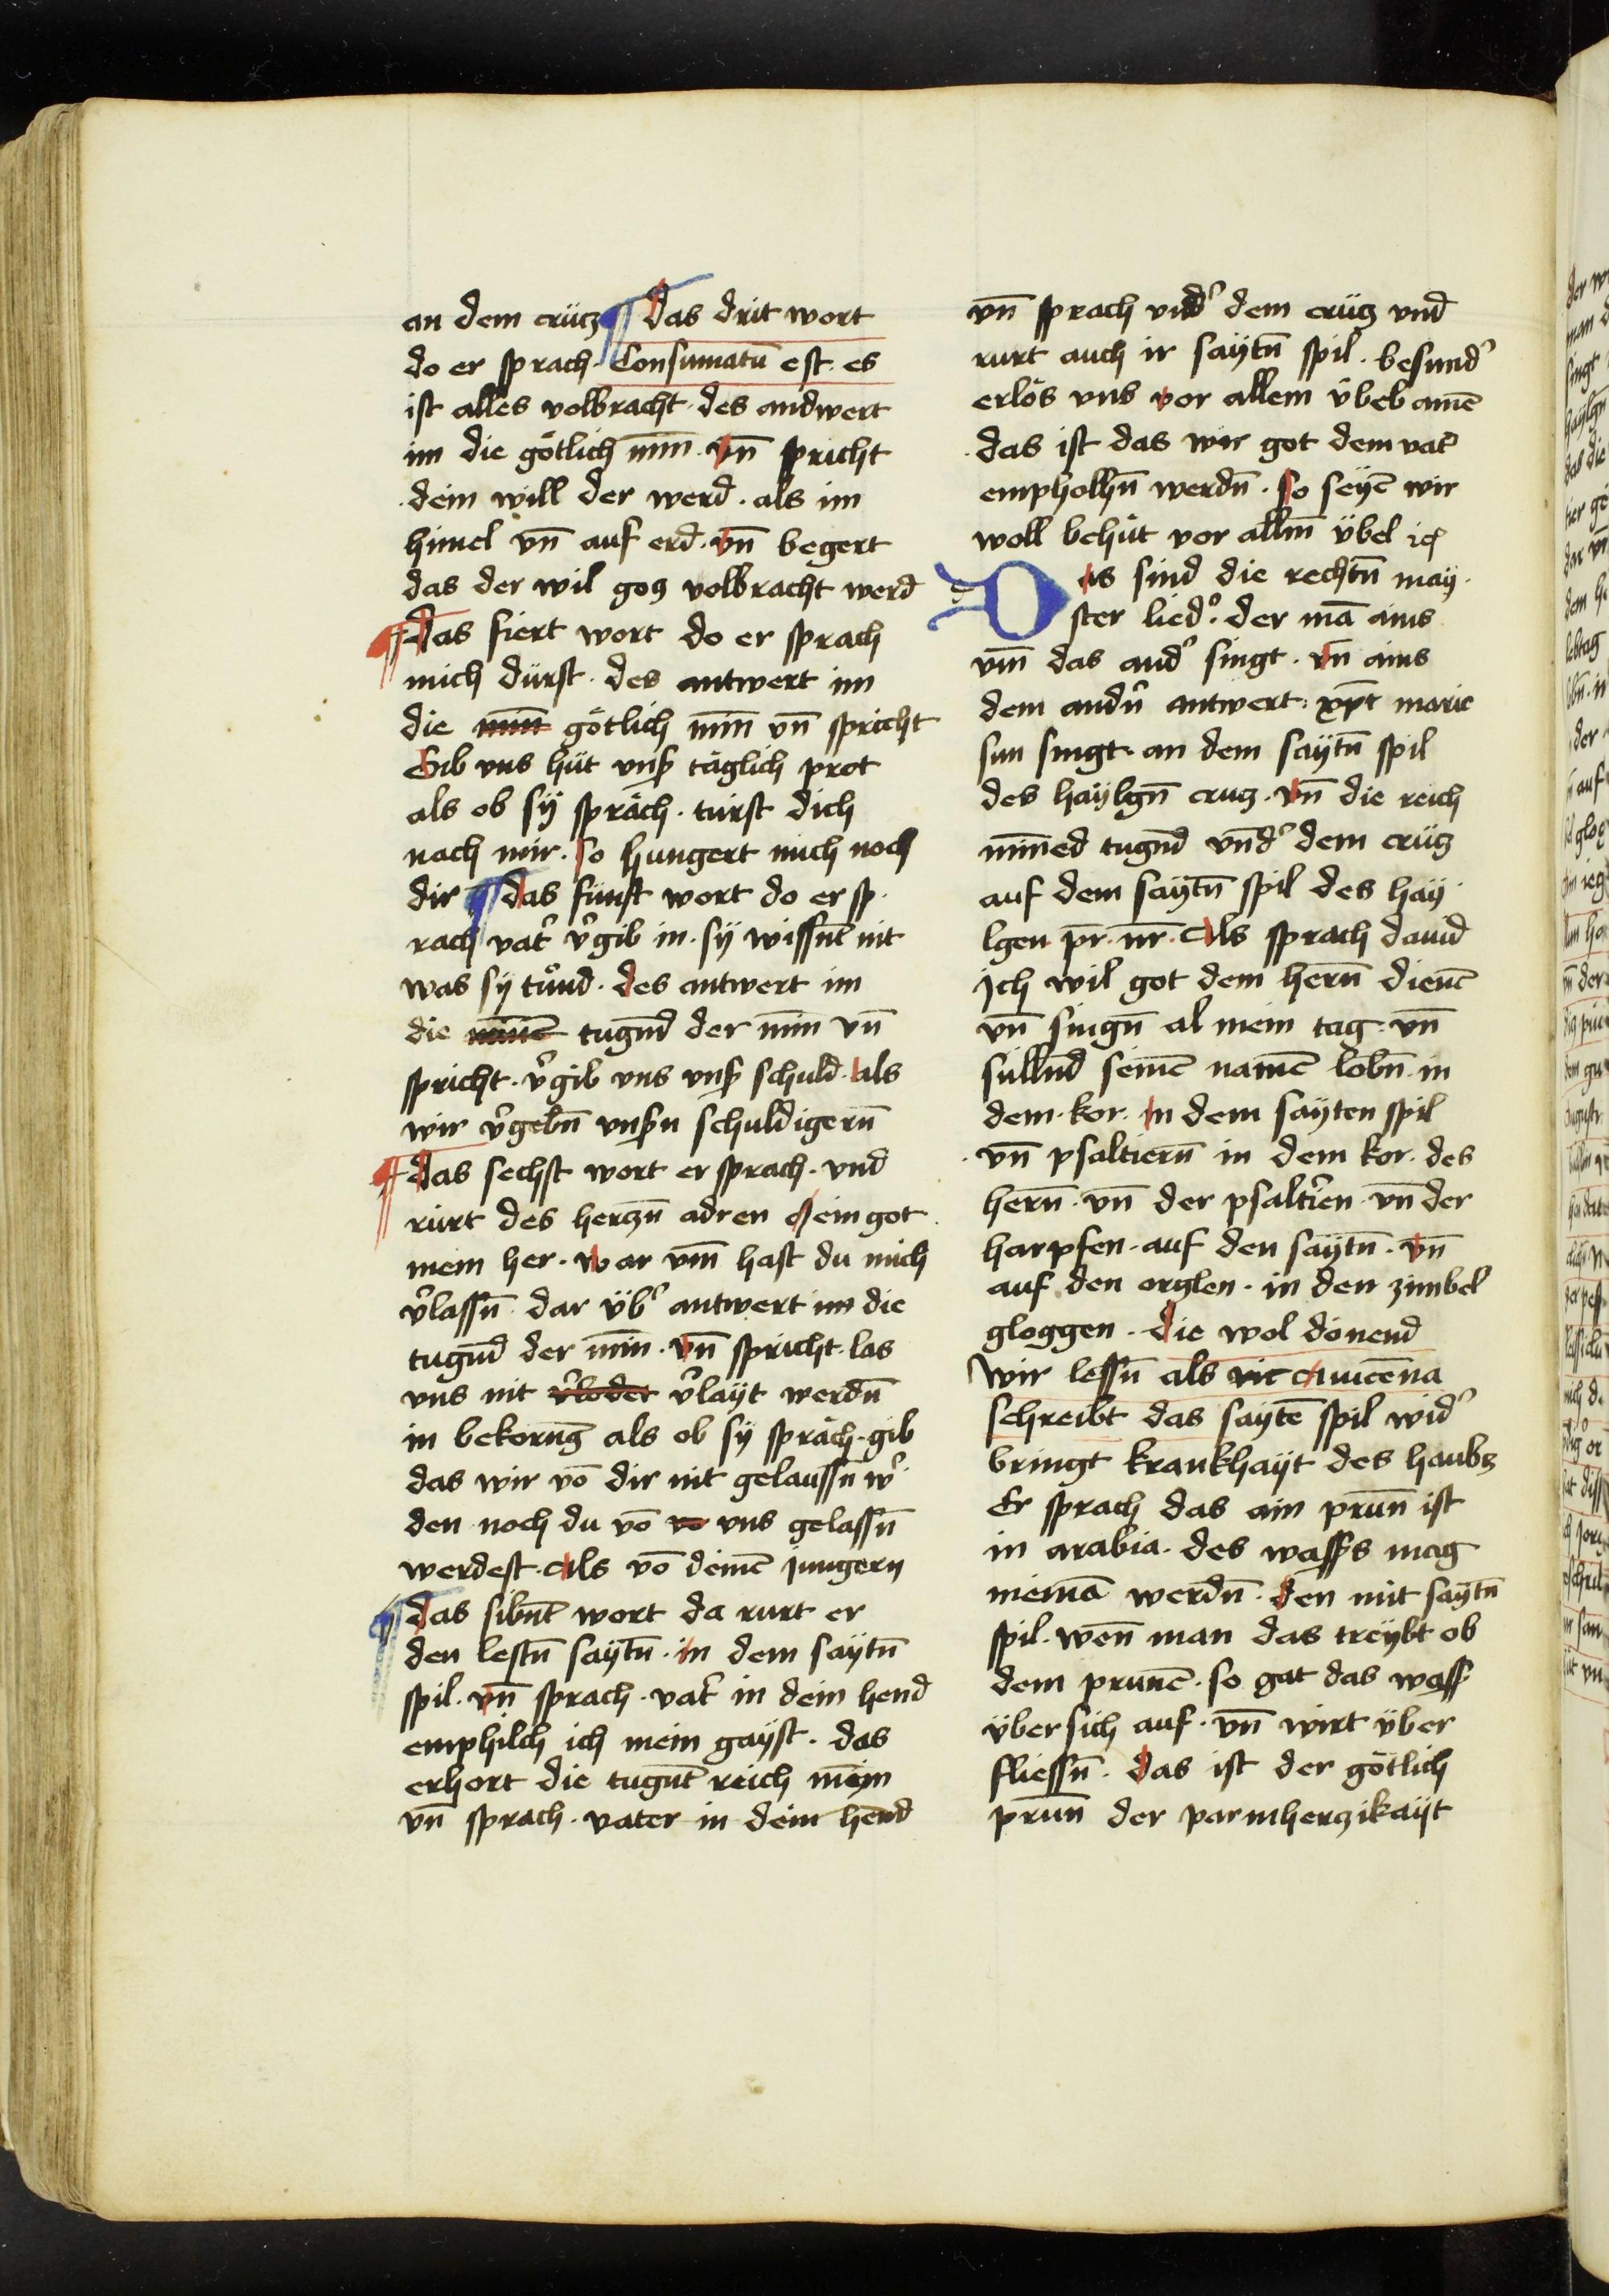 an dem crütz ¶ Das drit wort
do er sprach Consumatū est es
ist alles volbracht · des andwert
im die götlich min̄ · vn̄ spricht
· dein will der werd · als im
himel vn̄ auf erd · vn̄ begert
das der wil gotz volbracht werd
¶ Das fiert wort do er sprach
mich dürst · des antwert im
die min̄ götlich min̄ vn̄ spricht
Gib vns hüt vnsß täglich prot
als ob sÿ spräch · türst dich
nach mir · so hungert mich noch
dir ¶ das fünft wort do er sp
rach vat͛ v͛gib in · sÿ wissn̄t nit
was sÿ tůnd · des antwert im
die tugn̄d der min̄ vn̄
spricht · v͛gib vns vnsß schuld · als
wir v͛gebn̄ vnsßn schuldigern̄
¶ Das sechst wort er sprach · vnd
rürt des hertzn̄ adren mein got
mein her · war vm̄ hast du mich
v͛lassn̄ · dar üb͛ antwert im die
tugn̄d der min̄ · vn̄ spricht · las
vns nit v͛layt werdn̄
in bekorn̄g als ob sÿ spräch · gib
das wir vō dir nit gelaussn̄ w͛
den noch du vō vo vns gelassn̄
werdest · Als vō deinē jungern
¶ Das sibn̄t wort da rurt er
den lestn̄ saÿtn̄ · in dem saÿtn̄
spil · vn̄ sprach · vat͛ in dein hend
emphilch ich mein gaÿst · das
erhort die tugn̄t reich min̄
vn̄ sprach · vater in dein hend
vn̄ sprach vnd͛ dem crütz vnd
rurt auch ir saÿtn̄ spil · besund͛
erlös vns vor allem übeb amē
· das ist das wir got dem vat͛
empholhn̄ werdn̄ · so seÿē wir
woll behüt vor allm̄ übel
Das sind die rechtn̄ maÿ
ster lied͛ · der mā ains
vm̄ das and͛ singt · vn̄ ains
dem andn̄ antwert · xp̄t marie
sun singt · an dem saÿtn̄ spil
des haÿlgn̄ crutz · vn̄ die reich
min̄ed tugn̄d vn̄d͛ dem crütz
auf dem saÿtn̄ spil des haÿ
lgen pr̄ · nr̄ · Als sprach dauid
Ich wil got dem hern̄ dienē
vn̄ singn̄ al mein tag · vn̄
sullnd seinē namē lobn̄ in
dem · kor · in dem saÿten spil
· vn̄ psaltiern̄ in dem kor · des
hern̄ · vn̄ der psalt͛ien · vn̄ der
harpfen · auf den saÿtn̄ · vn̄
auf den orglen · in den zimbel
gloggen · die wol dönend
Wir lessn̄ als Auicēna
schreibt das saÿtē spil wid͛
bringt krankhaÿt des haubtz
Er sprach das ain prun̄ ist
in arabia · des wassßs mag
niemā werdn̄ · den mit saÿtn̄
spil · wen̄ man das treÿbt ob
dem prunē · so gat das wassß
über sich auf · vn̄ wirt über
fliessn̄ · das ist der götlich
prun̄ der parmhertzikaÿt